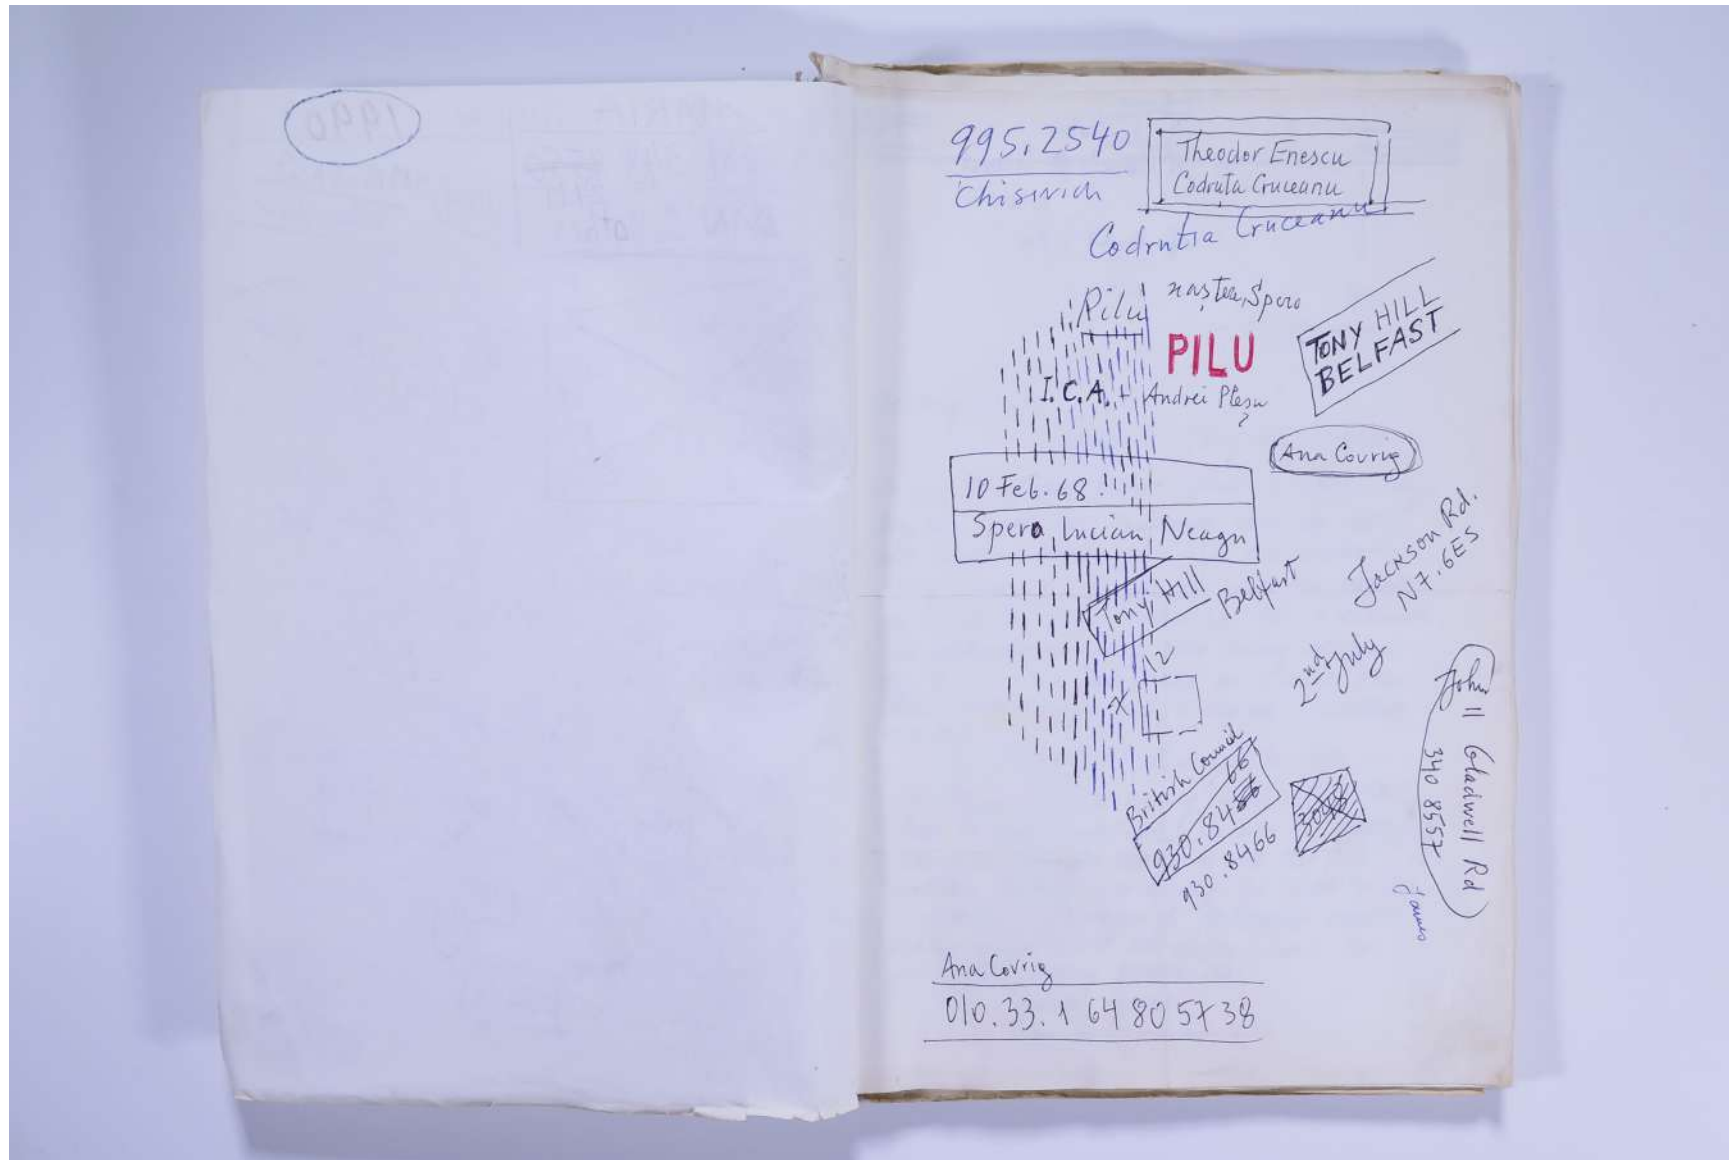 1990
995.2540
Chiswick
Theodor Enescu
Codruta Cruceanu
Codrutia Cruceanu
Pilu
Spero
PILU
TONY HILL
BELFAST
I.C.A. + Andrei Plesu
?
Ana Covrig
10 Feb. 68.
Spero, Lucian, Neagu
Tony Hill
Belfast
Jackson Rd.
N7.6ES
12
7
2nd July
British Council
930.84
66
930.8466
John 11 Gladwell Rd
340 8557
James
Ana Covrig
010.33.1 64 80 57 38